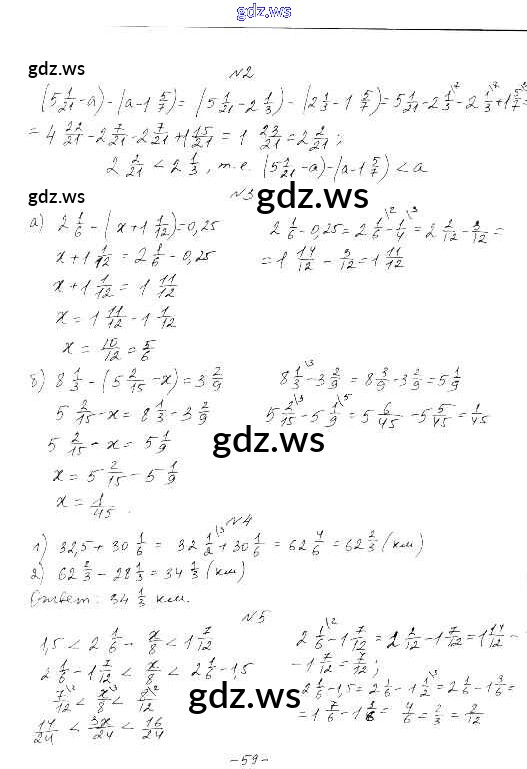 gdz.ws
gdz.ws
№2
(5 1/21 - a) - (a - 1 5/7) = (5 1/21 - 2 1/3) - (2 1/3 - 1 5/7) = 5 1/21 - 2 1/3 - 2 1/3 + 1 5/7 =
= 4 22/21 - 2 7/21 - 2 7/21 + 1 15/21 = 1 23/21 = 2 2/21;
2 2/21 < 2 1/3, т.е. (5 1/21 - a) - (a - 1 5/7) < a
gdz.ws
№3
gdz.ws
а) 2 1/6 - (x + 1 1/12) = 0,25
2 1/6 - 0,25 = 2 1/6 - 1/4 = 2 2/12 - 3/12 =
x + 1 1/12 = 2 1/6 - 0,25
= 1 14/12 - 3/12 = 1 11/12
x + 1 1/12 = 1 11/12
x = 1 11/12 - 1 1/12
x = 10/12 = 5/6
б) 8 1/3 - (5 2/15 - x) = 3 2/9
8 1/3 - 3 2/9 = 8 3/9 - 3 2/9 = 5 1/9
5 2/15 - x = 8 1/3 - 3 2/9
5 2/15 - 5 1/9 = 5 6/45 - 5 5/45 = 1/45
5 2/15 - x = 5 1/9
gdz.ws
x = 5 2/15 - 5 1/9
x = 1/45.
№4
1) 32,5 + 30 1/6 = 32 1/2 + 30 1/6 = 62 4/6 = 62 2/3 (км)
2) 62 2/3 - 28 1/3 = 34 1/3 (км)
Ответ: 34 1/3 км.
№5
1,5 < 2 1/6 - x/8 < 1 7/12
2 1/6 - 1 7/12 = 2 2/12 - 1 7/12 = 1 14/12 -
- 1 7/12 = 7/12;
2 1/6 - 1 7/12 < x/8 < 2 1/6 - 1,5
2 1/6 - 1,5 = 2 1/6 - 1 1/2 = 2 1/6 - 1 3/6 =
7/12 < x/8 < 8/12
gdz.ws
= 1 7/6 - 1 3/6 = 4/6 = 2/3 = 8/12
14/24 < 3x/24 < 16/24
- 59 -